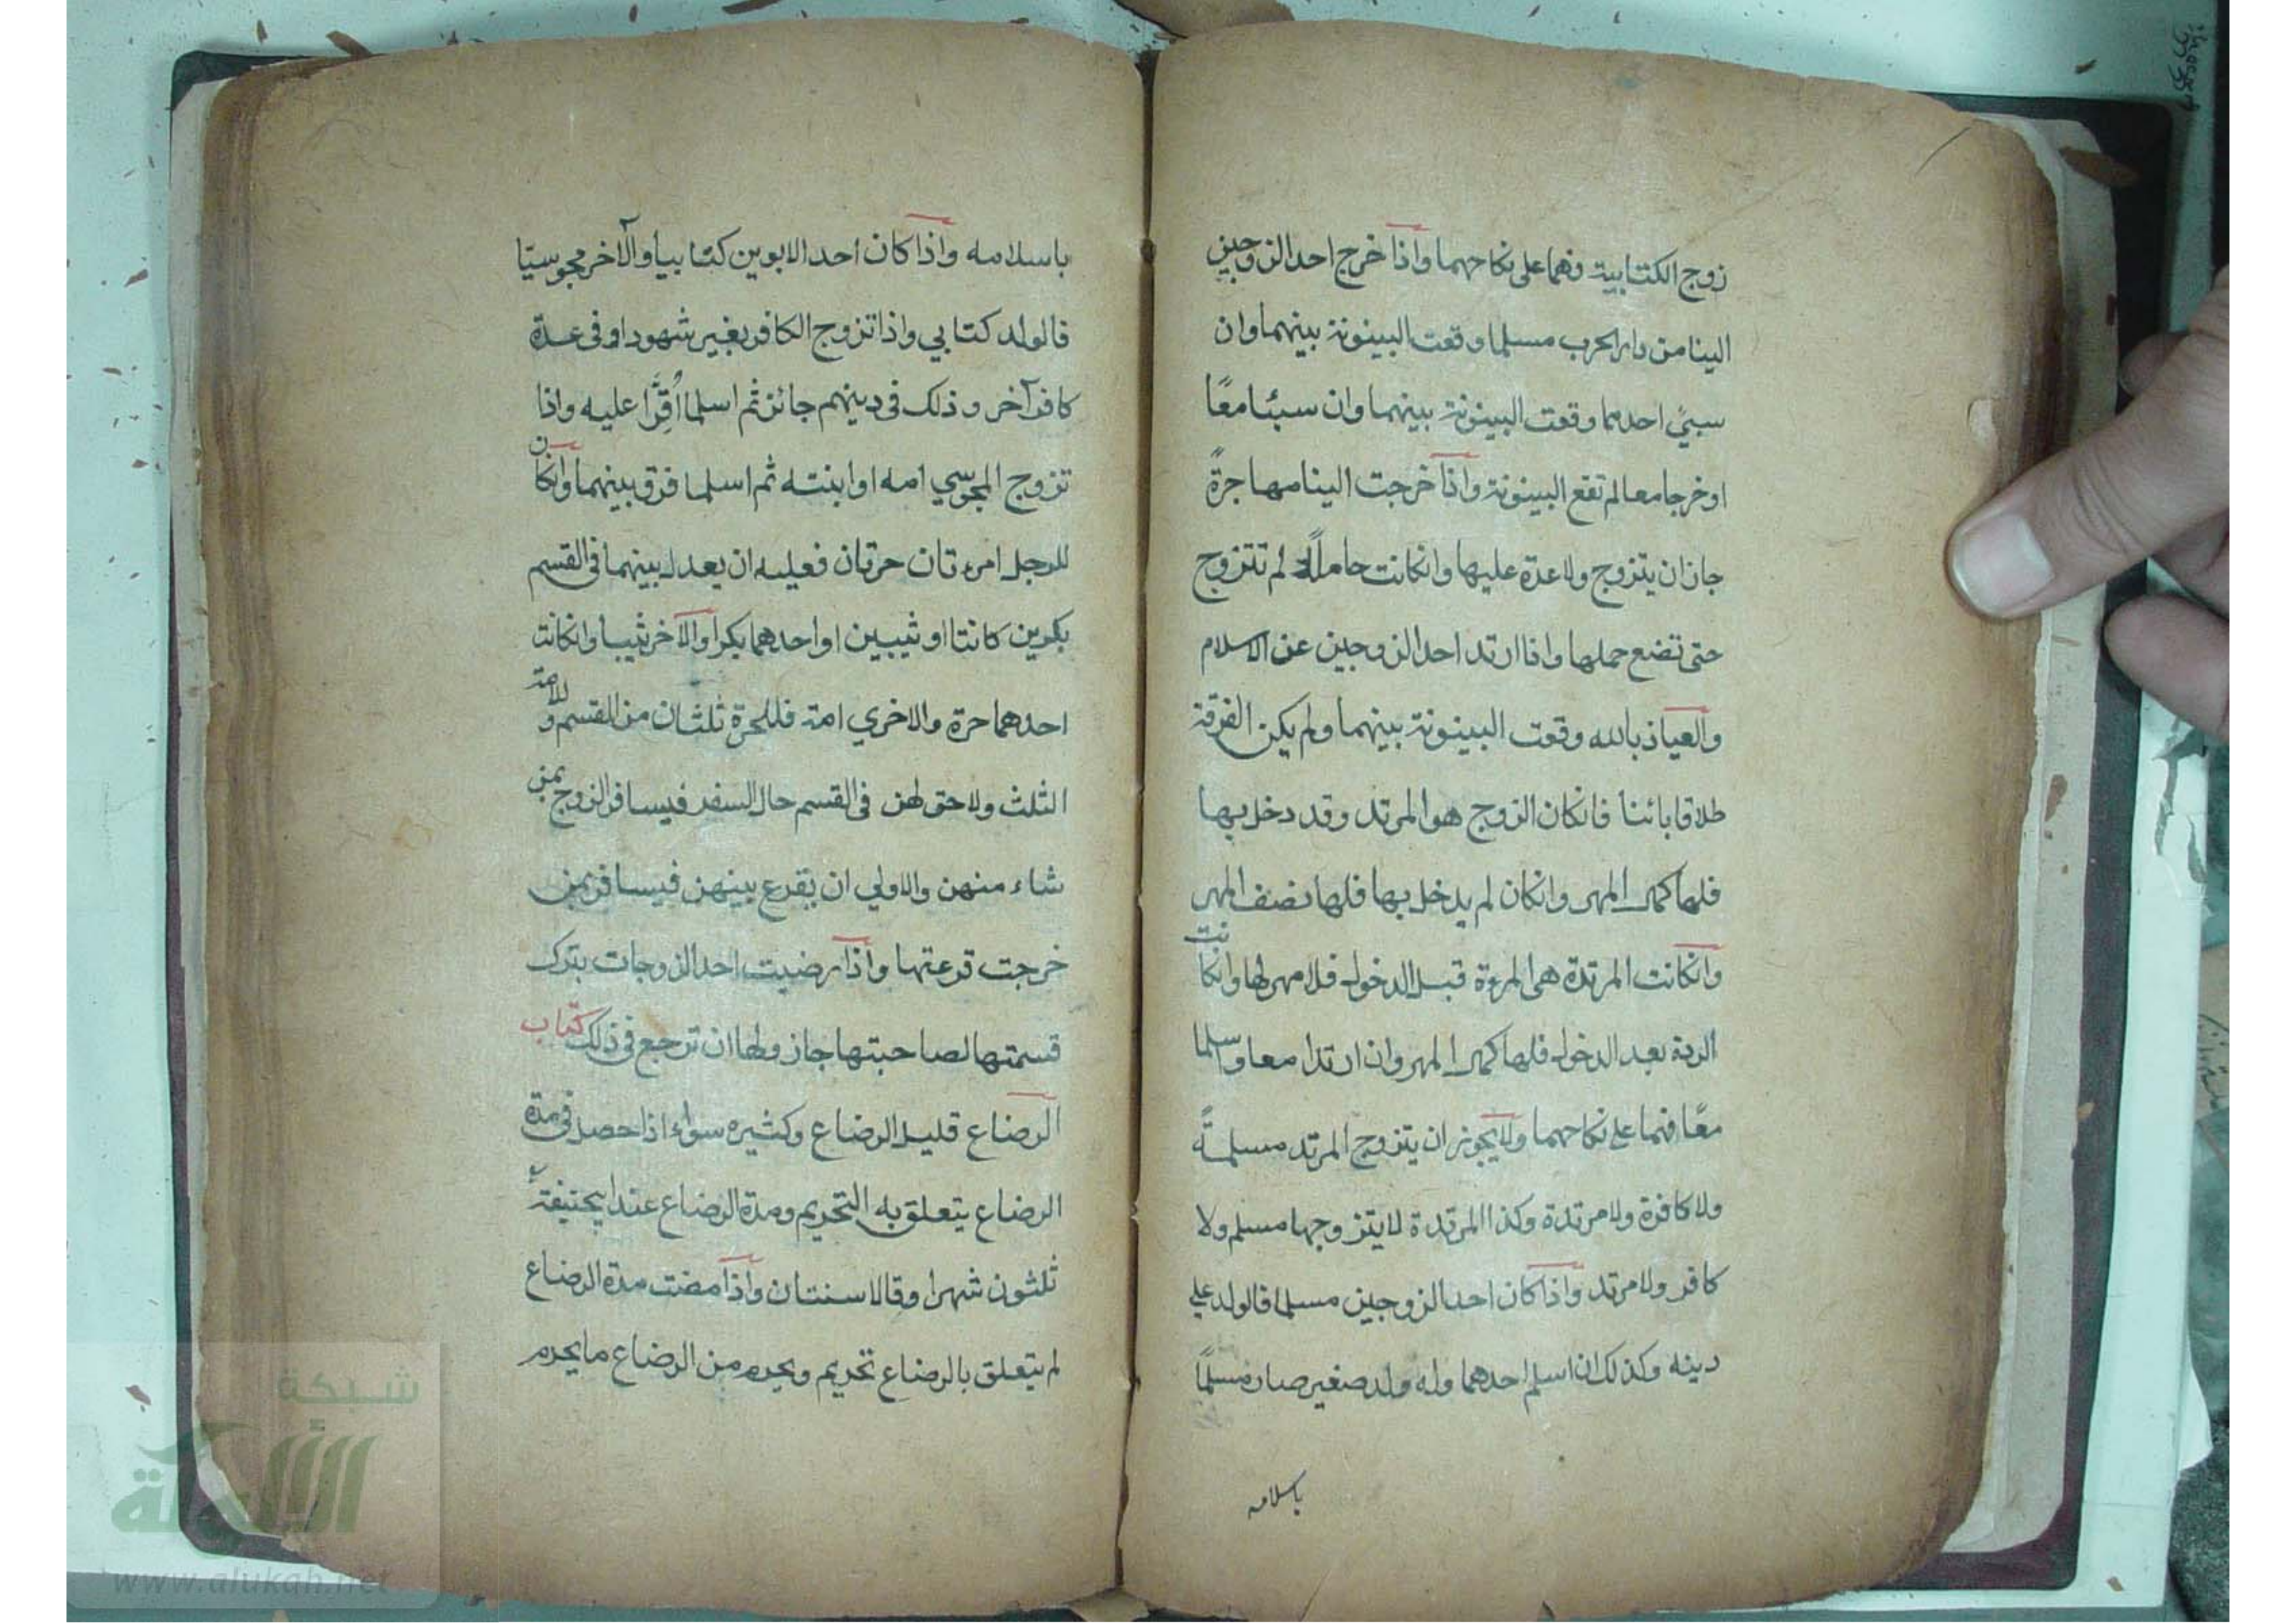 زوج الكتابية فهما على نكاحهما واذا خرج احد الزوجين
الينا من دار الحرب مسلما وقعت البينونة بينهما وان
سبي احدهما وقعت البينونة بينهما وان سبيا معًا
او خرجا معا لم تقع البينونة واذا خرجت الينا مهاجرةً
جاز ان يتزوج ولا عدة عليها وانكانت حاملاً لم تتزوج
حتى تضع حملها واذا ارتد احد الزوجين عن الاسلام
والعياذ بالله وقعت البينونة بينهما ولم يكن الفرقة
طلاقا بائنا فانكان الزوج هو المرتد وقد دخل بها
فلها كمال المهر وانكان لم يدخل بها فلها نصف المهر
وانكانت المرتدة هى المرءة قبل الدخول فلا مهر لها وانكانت
الردة بعد الدخول فلها كمال المهر وان ارتدا معا واسلما
معًا فهما على نكاحهما ولا يجوز ان يتزوج المرتد مسلمةً
ولا كافرة ولا مرتدة وكذا المرتدة لا يتزوجها مسلم ولا
كافر ولا مرتد واذا كان احد الزوجين مسلما فالولد على
دينه وكذلك ان اسلم احدهما وله ولد صغير صار مسلمًا
باسلامه
باسلامه واذا كان احد الابوين كتابيا والآخر مجوسيّا
فالولد كتابي واذا تزوج الكافر بغير شهود او فى عدة
كافر آخر و ذلك فى دينهم جائز ثم اسلما اُقِرَّا عليه واذا
تزوج المجوسي امه او ابنته ثم اسلما فرق بينهما وانكان
للرجل امرءتان حرتان فعليه ان يعدل بينهما فى القسم
بكرين كانتا او ثيبين او احدهما بكرا والآخر ثيبا وانكانت
احدهما حرة والاخري امة فللحرة ثلثان من القسم و للامة
الثلث ولا حق لهن فى القسم حال السفر فيسافر الزوج بمن
شاء منهن والاولي ان يقرع بينهن فيسافر بمن
خرجت قرعتها واذا رضيت احد الزوجات بترك
قسمتها لصاحبتها جاز ولها ان ترجع فى ذلك كتاب
الرضاع قليل الرضاع وكثيره سواء اذا حصل فى مدة
الرضاع يتعلق به التحريم ومدة الرضاع عند ابيحنيفة
ثلثون شهرا وقالا سنتان واذا مضت مدة الرضاع
لم يتعلق بالرضاع تحريم ويحرم من الرضاع ما يحرم
شبكة
الألوكة
www.alukah.net